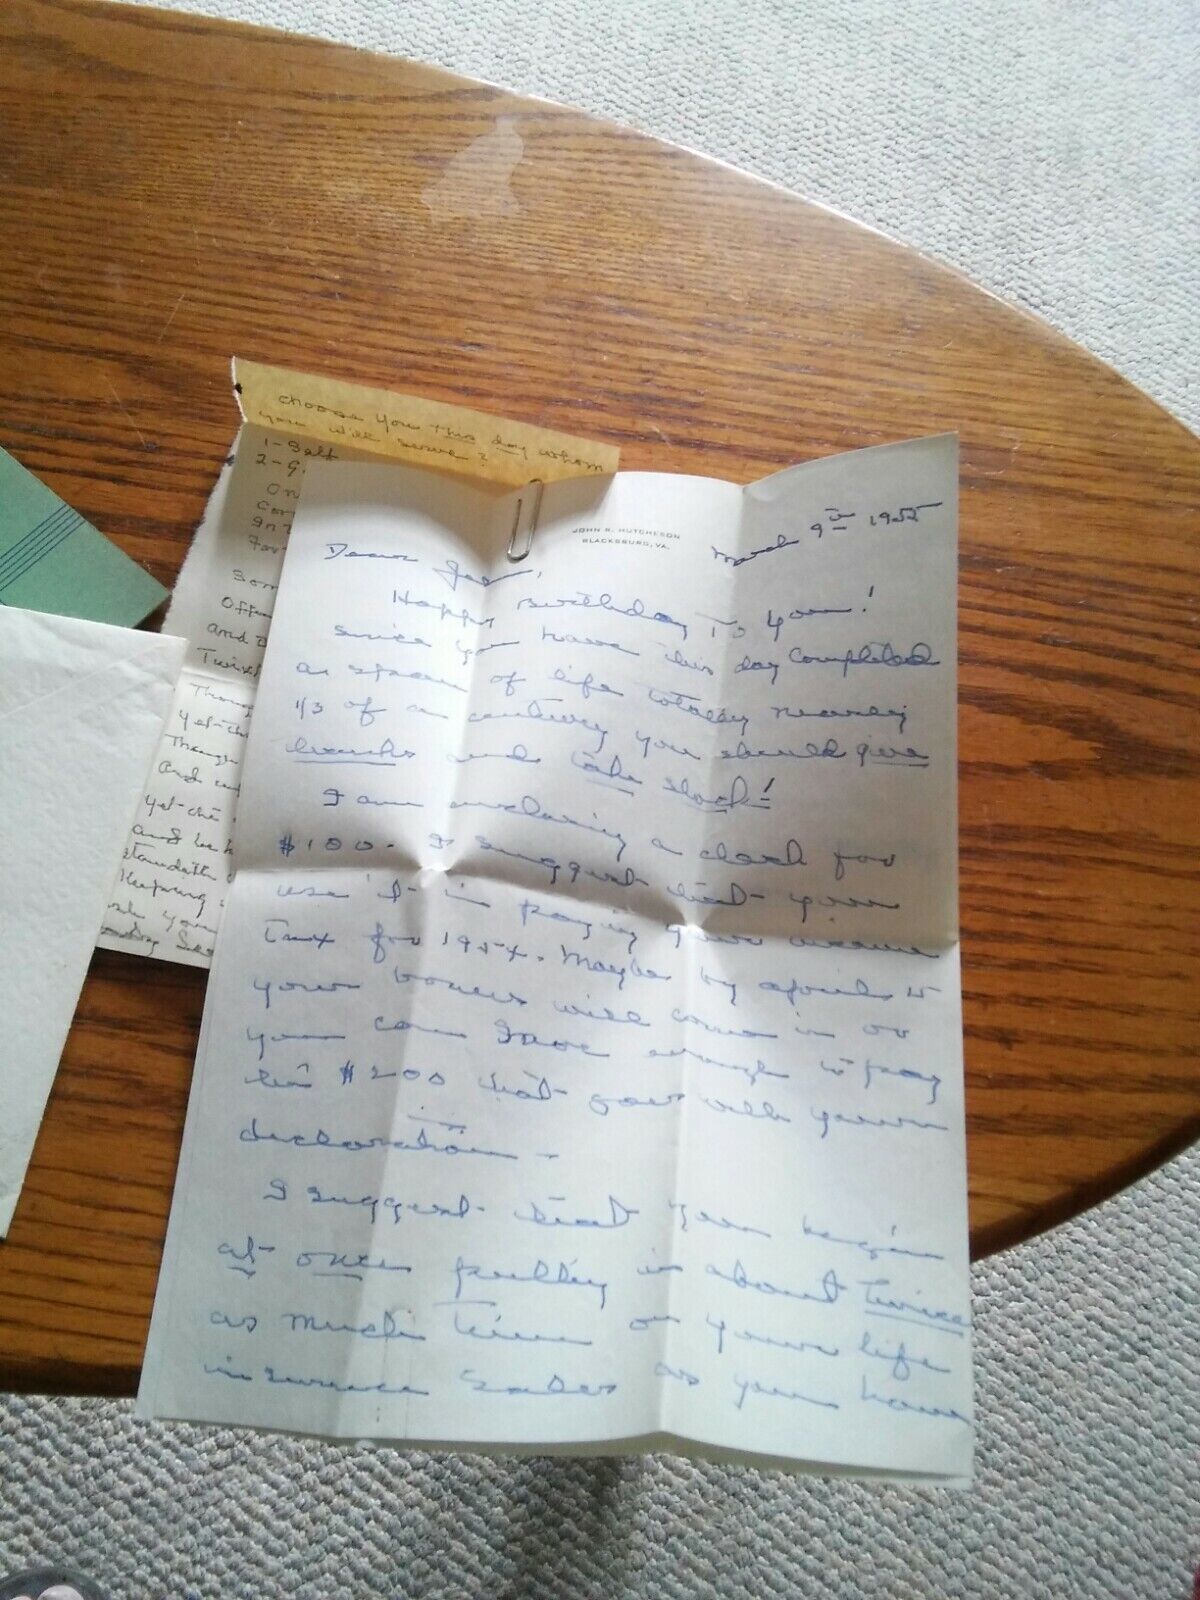 choose you this day whom
you will serve?
1-Self
2-G
On
Som
and
Twixt
yet-the
and
yet-the
and he h
standeth
Keeping
JOHN R. HUTCHESON
BLACKSBURG, VA.
March 9th 1955
Dear
Happy Birthday To you!
Since you have this day completed
a span of life totaling nearly
1/3 of a century you should give
thanks and take stock!
I am enclosing a check for
$100- I suggest that you
use it in paying your income
Tax for 1954. Maybe by April 15
your bonus will come in or
you can save enough to pay
the $200 that goes with your
declaration -
I suggest that you begin
at once putting in about twice
as much time on your life
insurance sales as you have